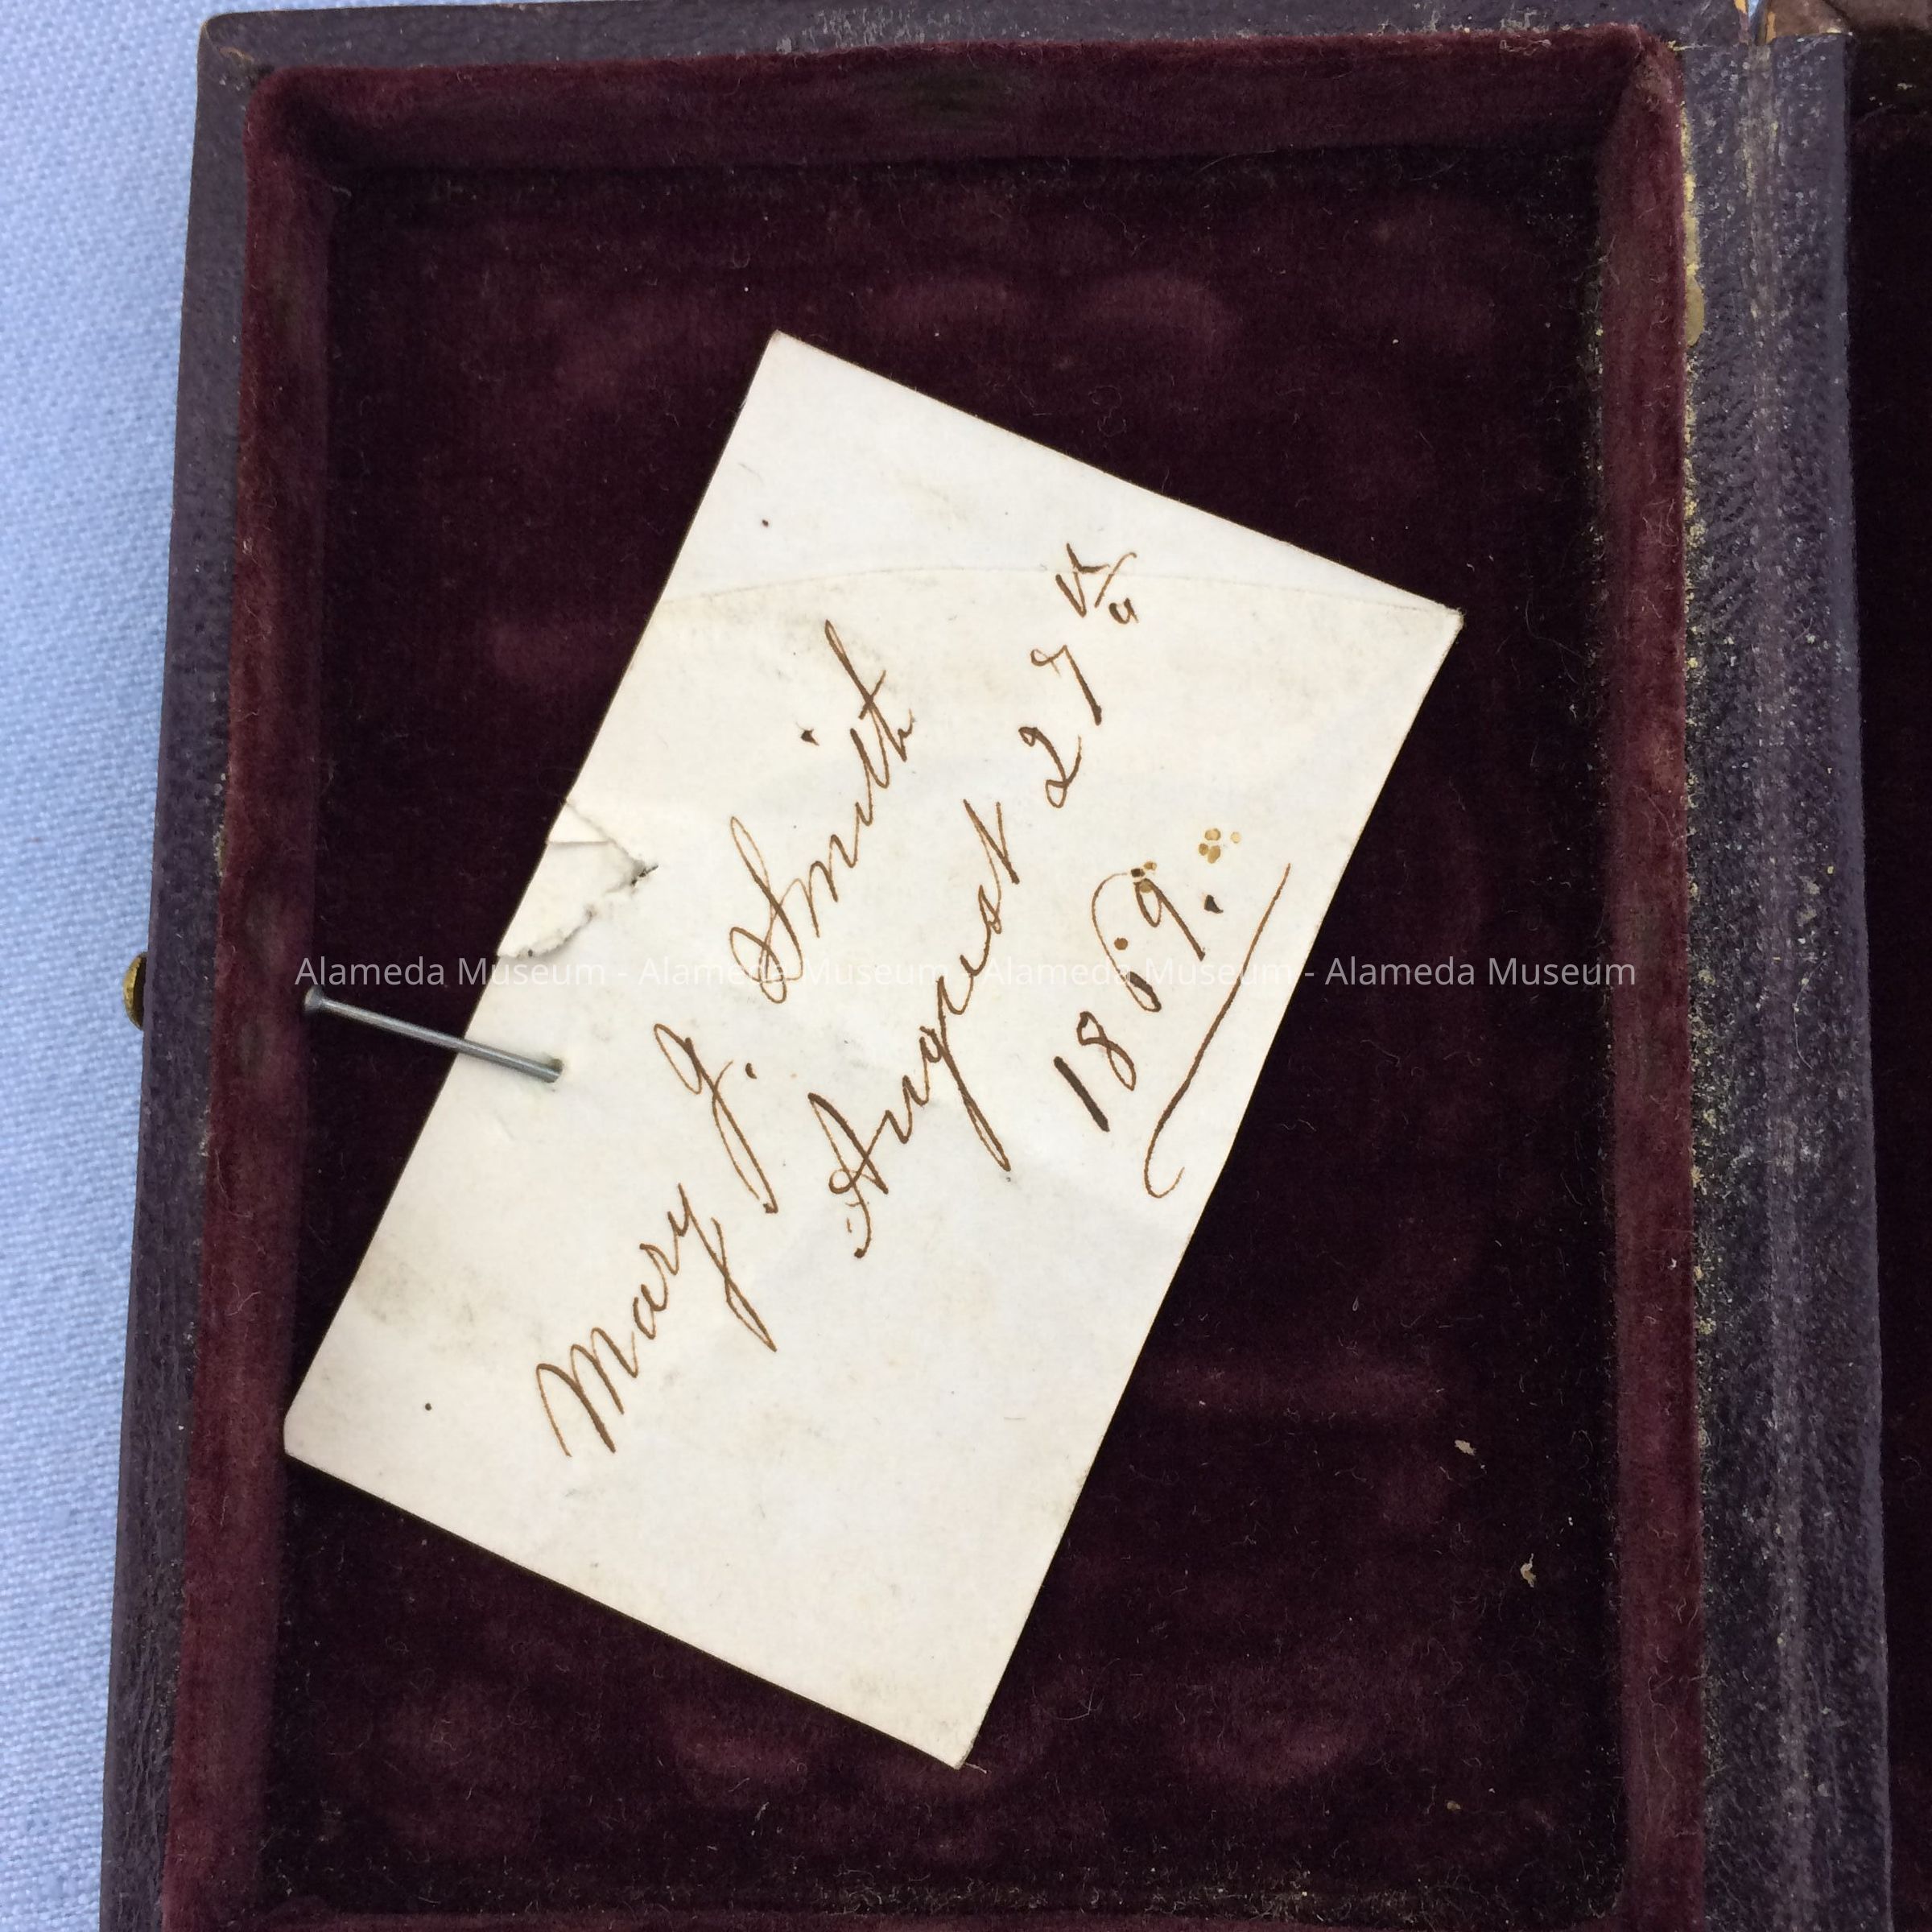 Mary J. Smith
August 27th
1869.
Alameda Museum - Alameda Museum - Alameda Museum - Alameda Museum